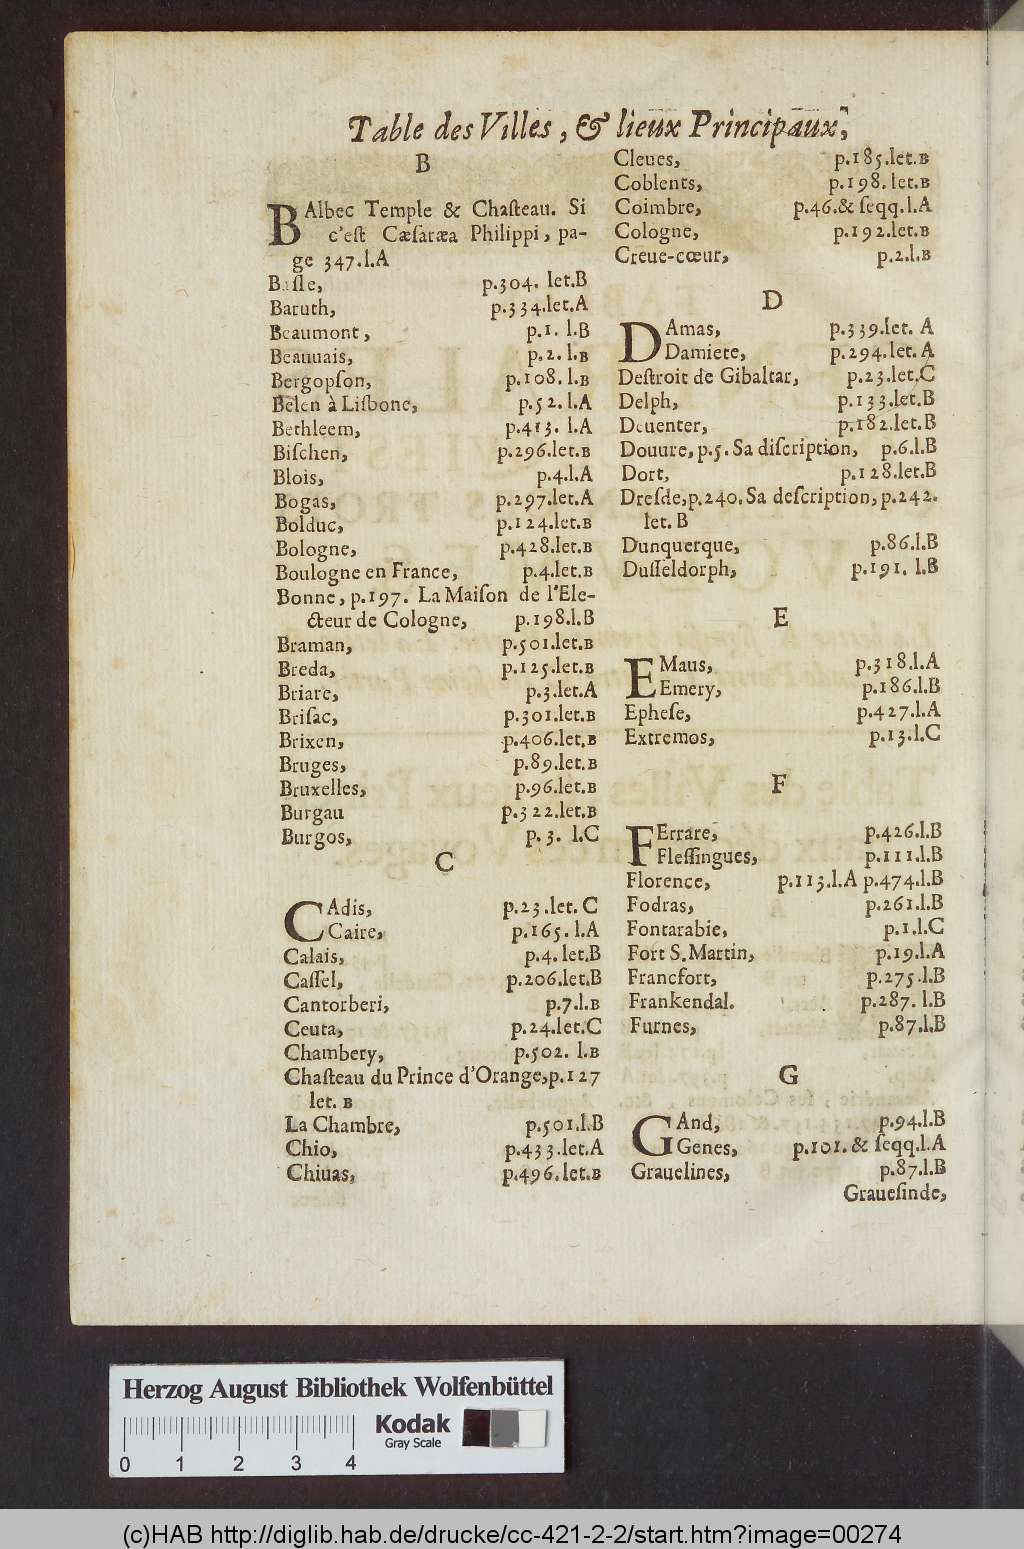 Table des Villes, & lieux Principaux,
B
BAlbec Temple & Chaſteau. Si
c'eſt Cæſaræa Philippi, pa-
ge 347.l.A
Baſle, p.304. let.B
Baruth, p.334.let.A
Beaumont, p.1. l.B
Beauuais, p.2. l.B
Bergopſon, p.108. l.B
Belen à Liſbone, p.52. l.A
Bethleem, p.413. l.A
Biſchen, p.296.let.B
Blois, p.4.l.A
Bogas, p.297.let.A
Bolduc, p.124.let.B
Bologne, p.428.let.B
Boulogne en France, p.4.let.B
Bonne, p.197. La Maiſon de l'Ele-
cteur de Cologne, p.198.l.B
Braman, p.501.let.B
Breda, p.125.let.B
Briare, p.3.let.A
Briſac, p.301.let.B
Brixen, p.406.let.B
Bruges, p.89.let.B
Bruxelles, p.96.let.B
Burgau p.322.let.B
Burgos, p. 3. l.C
C
CAdis, p.23.let. C
Caire, p.165. l.A
Calais, p.4. let.B
Caſſel, p.206.let.B
Cantorberi, p.7.l.B
Ceuta, p.24.let.C
Chambery, p.502. l.B
Chaſteau du Prince d'Orange,p.127
let. B
La Chambre, p.501.l.B
Chio, p.433.let.A
Chiuas, p.496.let.B
Cleues, p.185.let.B
Coblents, p.198. let.B
Coimbre, p.46.& ſeqq.l.A
Cologne, p.192.let.B
Creue-cœur, p.2.l.B
D
DAmas, p.339.let. A
Damiete, p.294.let. A
Deſtroit de Gibaltar, p.23.let.C
Delph, p.133.let.B
Deuenter, p.182.let.B
Douure, p.5. Sa diſcription, p.6.l.B
Dort, p.128.let.B
Dreſde,p.240. Sa deſcription, p.242.
let. B
Dunquerque, p.86.l.B
Duſſeldorph, p.191. l.B
E
EMaus, p.318.l.A
Emery, p.186.l.B
Epheſe, p.427.l.A
Extremos, p.13.l.C
F
FErrare, p.426.l.B
Fleſſingues, p.111.l.B
Florence, p.113.l.A p.474.l.B
Fodras, p.261.l.B
Fontarabie, p.1.l.C
Fort S. Martin, p.19.l.A
Francfort, p.275.l.B
Frankendal. p.287. l.B
Furnes, p.87.l.B
G
GAnd, p.94.l.B
Genes, p.101. & ſeqq.l.A
Grauelines, p.87.l.B
Graueſinde,
Herzog August Bibliothek Wolfenbüttel
Kodak
Gray Scale
0 1 2 3 4
(c)HAB http://diglib.hab.de/drucke/cc-421-2-2/start.htm?image=00274